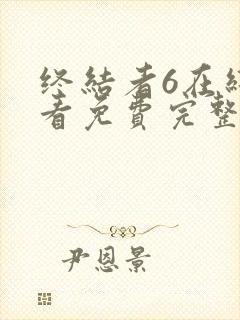 终结者6在线
看免费完整
尹恩景